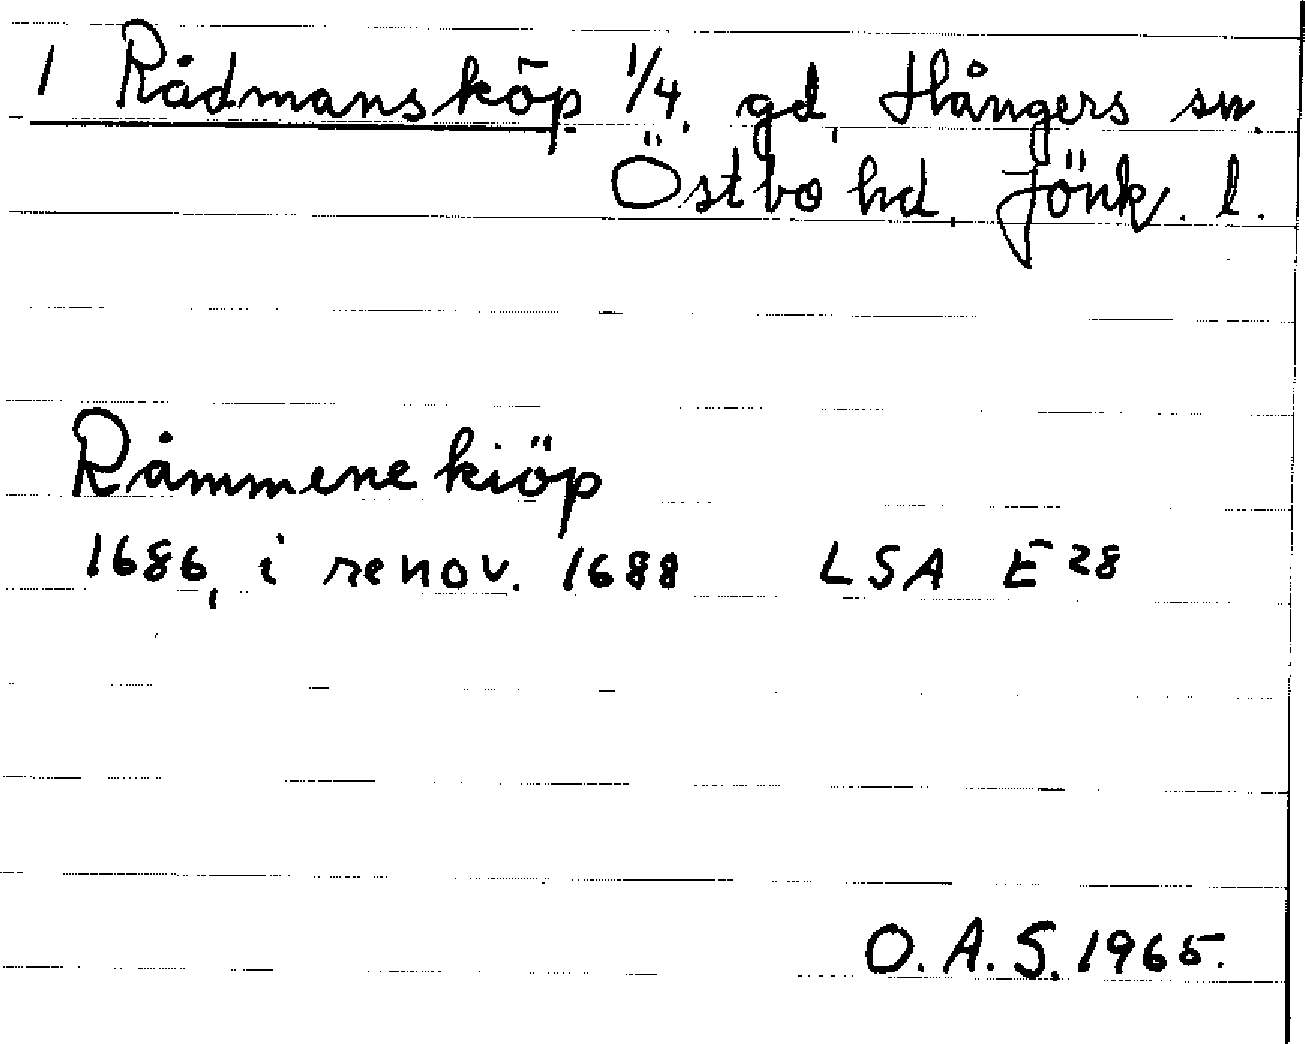 1 Rådmansköp 1/4, gd, Hångers sn.
Östbo hd, Jönk. l.
Råmmene kiöp
1686, i renov. 1688 LSA E 28
O.A.S. 1965.